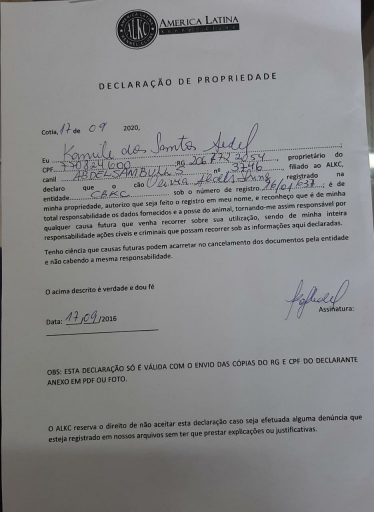 ALKC
AMERICA LATINA
DECLARAÇÃO DE PROPRIEDADE
Cotia, 17 de 09 2020,
Eu Kamile dos Santos
CPF RG , proprietário do
canil ABDELSAMBULLS nº 3746 filiado ao ALKC,
declaro que o cão registrado na
entidade CBKC sob o número de registro , é de
minha propriedade, autorizo que seja feito o registro em meu nome, e reconheço que é de minha
total responsabilidade os dados fornecidos e a posse do animal, tornando-me assim responsável por
qualquer causa futura que venha recorrer sobre sua utilização, sendo de minha inteira
responsabilidade ações cíveis e criminais que possam recorrer sob as informações aqui declaradas.
Tenho ciência que causas futuras podem acarretar no cancelamento dos documentos pela entidade
e não cabendo a mesma responsabilidade.
O acima descrito é verdade e dou fé
Assinatura:
Data: 17/09/2016
OBS: ESTA DECLARAÇÃO SÓ É VÁLIDA COM O ENVIO DAS CÓPIAS DO RG E CPF DO DECLARANTE
ANEXO EM PDF OU FOTO.
O ALKC reserva o direito de não aceitar esta declaração caso seja efetuada alguma denúncia que
esteja registrado em nossos arquivos sem ter que prestar explicações ou justificativas.